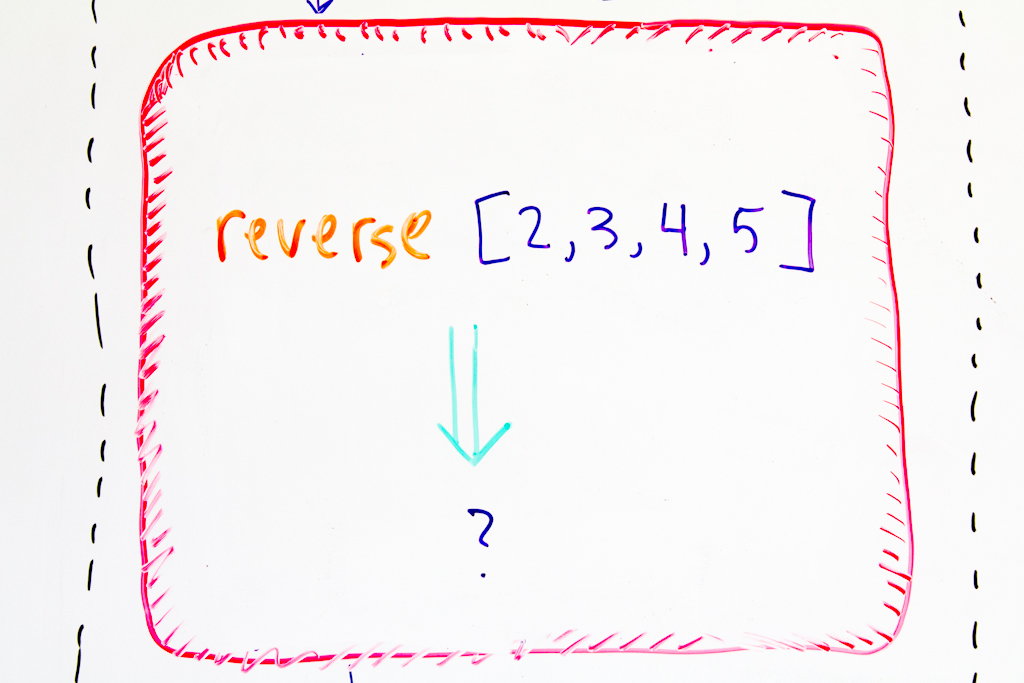 reverse [2,3,4,5]
?